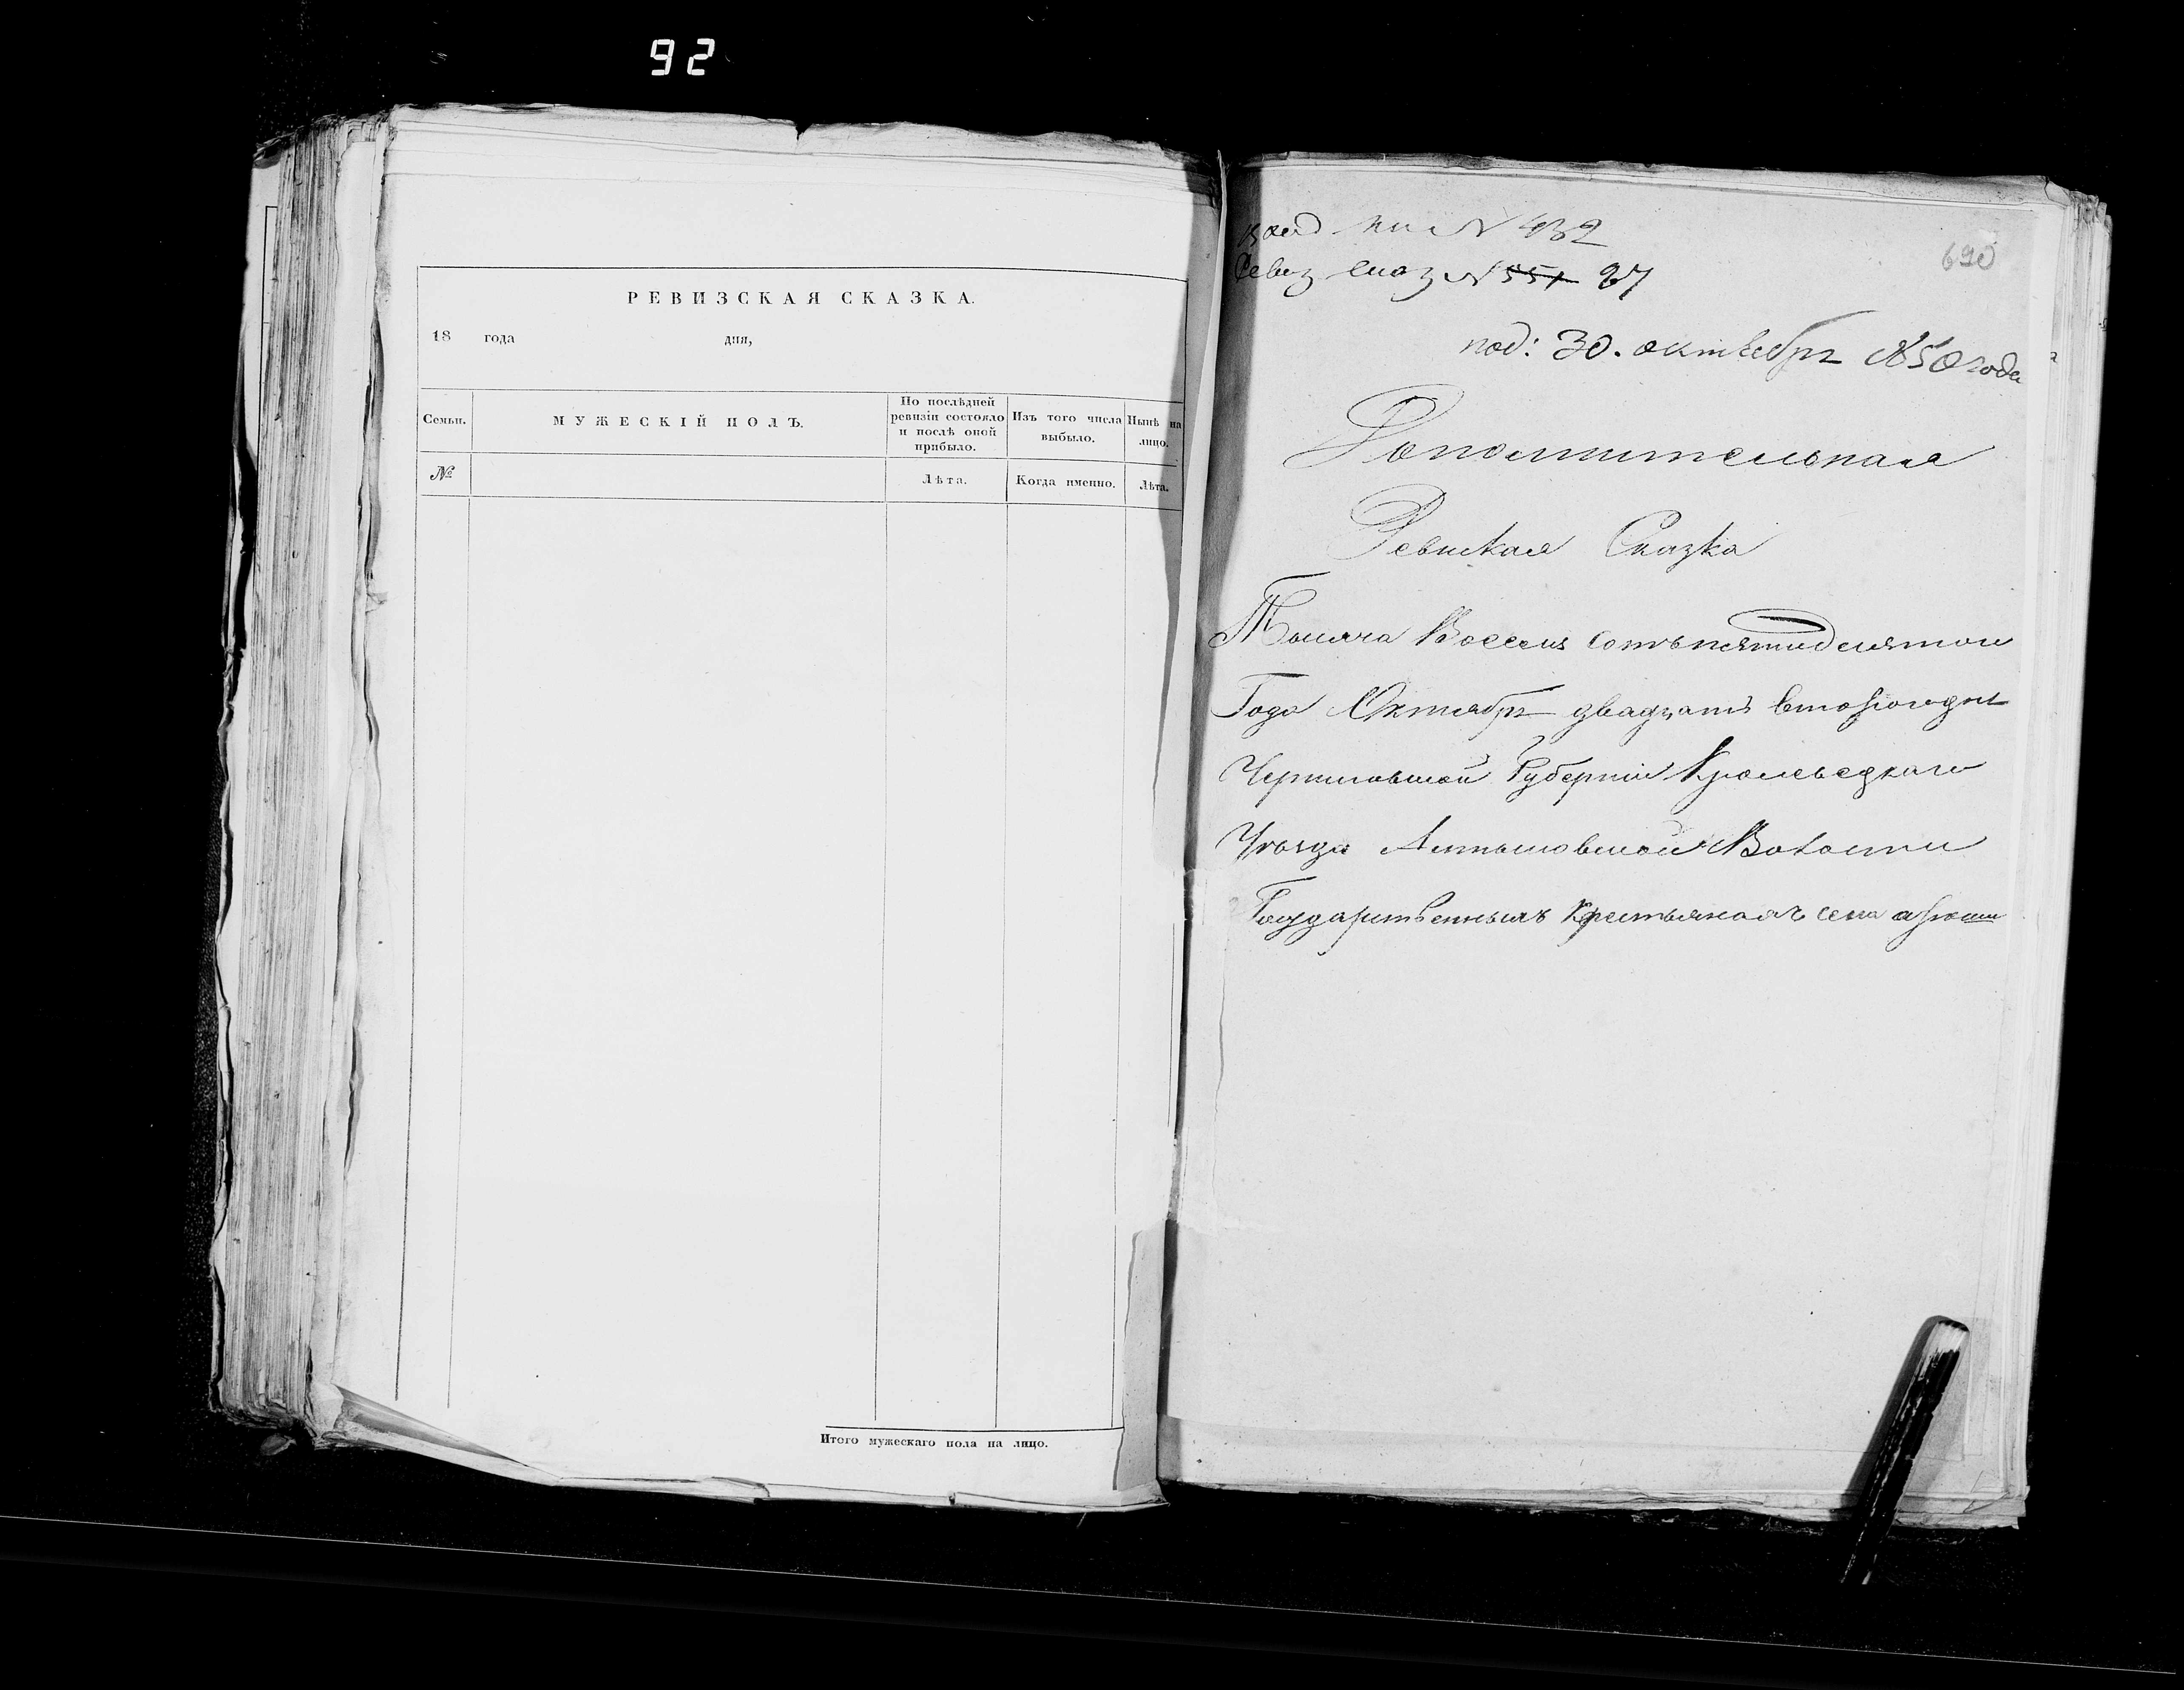 92
РЕВИЗСКАЯ СКАЗКА.
18 года дня,
Семьи.
МУЖЕСКІЙ ПОЛЪ.
По послѣдней
ревизіи состояло
и послѣ оной
прибыло.
Изъ того числа
выбыло.
Нынѣ на
лицо.
№
Лѣта.
Когда именно.
Лѣта.
Итого мужескаго пола на лицо.
N 432
Ревиз сказ N 551 27
690
под: 30. октебря 1850 года
Дополнительная
Ревиская Сказка
Тысяча Восемь сотъ пятидесятом
Года Октября двадцать второго дня
Черниговской Губерніи Кролевецкаго
Уѣзда Алтыновской Волости
Государственныхъ Крестьянахъ села